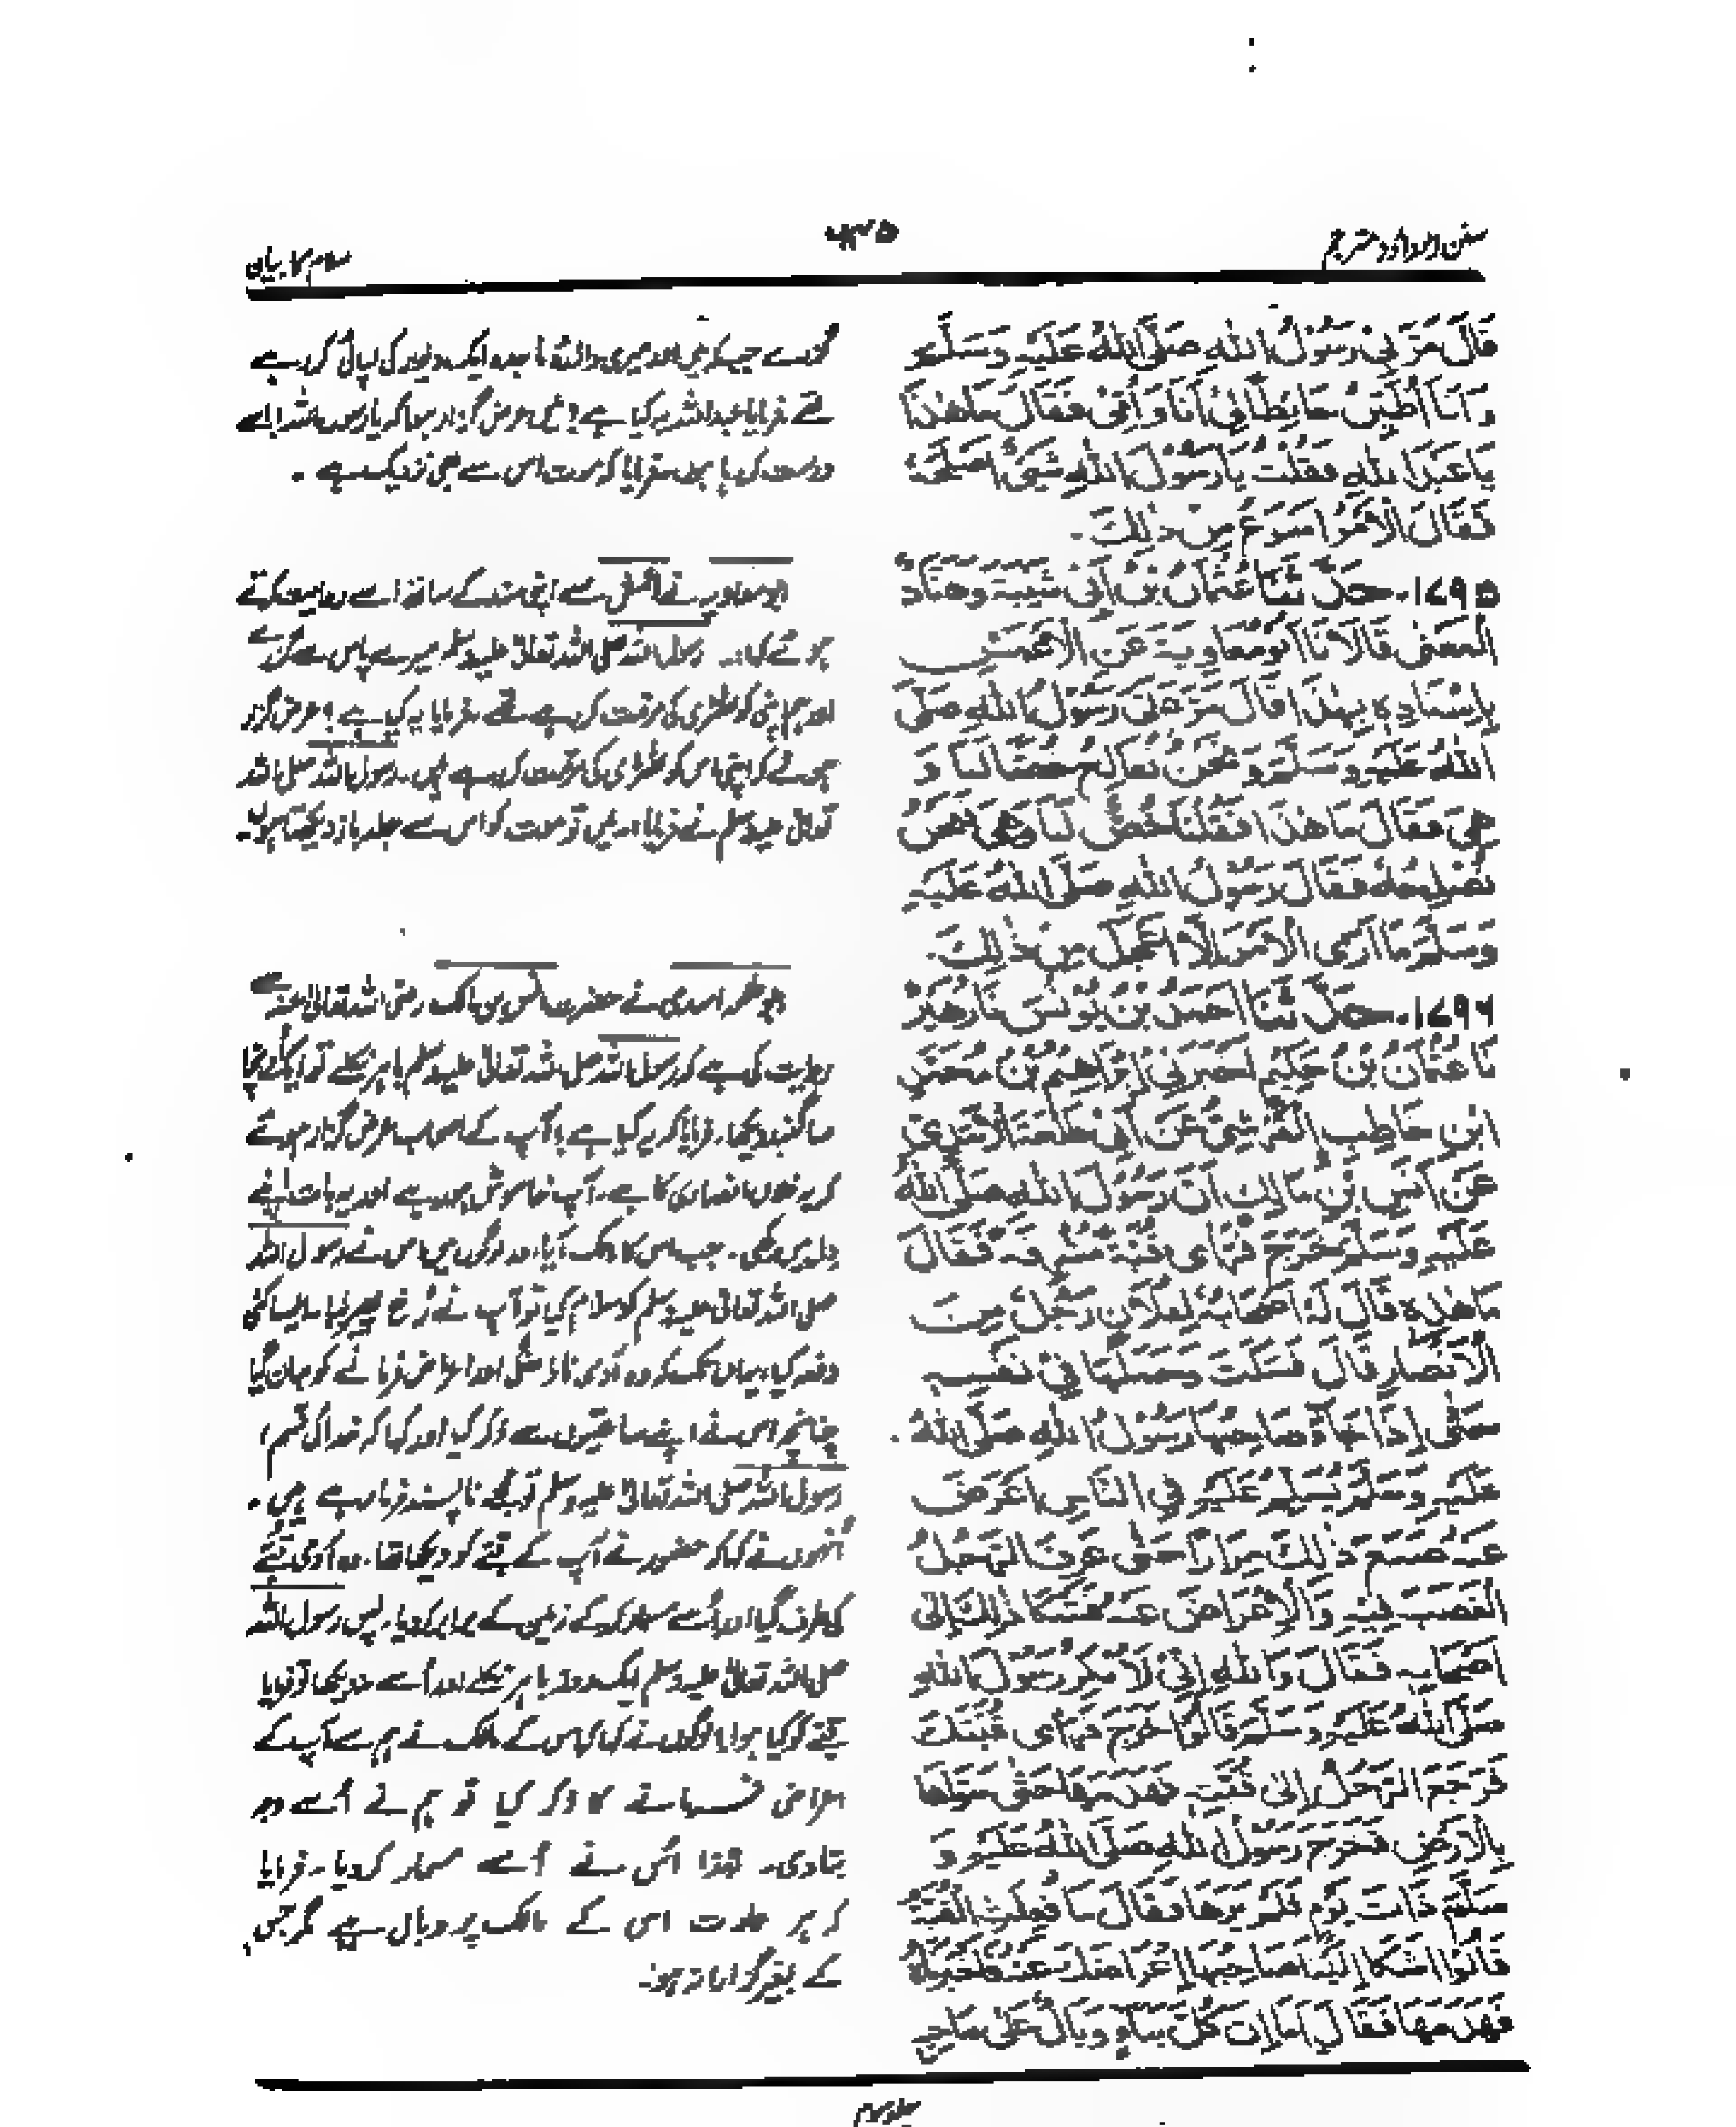 سنن ابوداؤد مترجم
۶۳۵
سلام کا بیان
قَالَ مَرَّ بِیْ رَسُوْلُ اللهِ صَلَّی اللهُ عَلَیْهِ وَسَلَّمَ
وَاَنَا اُطَیِّنُ حَائِطًا لِیْ اَنَا وَاُمِّیْ فَقَالَ مَا هٰذَا
یَا عَبْدَ اللهِ فَقُلْتُ یَا رَسُوْلَ اللهِ شَیْءٌ اُصْلِحُهٗ
فَقَالَ الْاَمْرُ اَسْرَعُ مِنْ ذٰلِكَ.
۱۷۹۵۔ حَدَّثَنَا عُثْمَانُ بْنُ اَبِیْ شَیْبَةَ وَهَنَّادٌ
الْمَعْنٰی قَالَا نَا اَبُوْ مُعَاوِیَةَ عَنِ الْاَعْمَشِ
بِاِسْنَادِهٖ بِهٰذَا قَالَ مَرَّ عَلَیَّ رَسُوْلُ اللهِ صَلَّی
اللهُ عَلَیْهِ وَسَلَّمَ وَنَحْنُ نُعَالِجُ خُصًّا لَنَا وَ
هِیَ فَقَالَ مَا هٰذَا فَقُلْنَا خُصٌّ لَنَا وَهٰی فَنَحْنُ
نُصْلِحُهٗ فَقَالَ رَسُوْلُ اللهِ صَلَّی اللهُ عَلَیْهِ
وَسَلَّمَ مَا اَرَی الْاَمْرَ اِلَّا اَعْجَلَ مِنْ ذٰلِكَ.
۱۷۹۶۔ حَدَّثَنَا اَحْمَدُ بْنُ یُوْنُسَ نَا زُهَیْرٌ
نَا عُثْمَانُ بْنُ حَكِیْمٍ اَخْبَرَنِیْ اِبْرَاهِیْمُ بْنُ مُحَمَّدِ
ابْنِ حَاطِبٍ الْقُرَشِیُّ عَنْ اَبِیْ طَلْحَةَ الْاَسَدِیِّ
عَنْ اَنَسِ بْنِ مَالِكٍ اَنَّ رَسُوْلَ اللهِ صَلَّی اللهُ
عَلَیْهِ وَسَلَّمَ خَرَجَ فَرَاٰی قُبَّةً مُشْرِفَةً فَقَالَ
مَا هٰذِهٖ قَالَ لَهٗ اَصْحَابُهٗ لِفُلَانٍ رَجُلٍ مِنَ
الْاَنْصَارِ قَالَ فَسَكَتَ وَحَمَلَهَا فِیْ نَفْسِهٖ
حَتّٰی اِذَا جَاءَ صَاحِبُهَا رَسُوْلَ اللهِ صَلَّی اللهُ
عَلَیْهِ وَسَلَّمَ یُسَلِّمُ عَلَیْهِ فِی النَّاسِ اَعْرَضَ
عَنْهُ صَنَعَ ذٰلِكَ مِرَارًا حَتّٰی عَرَفَ الرَّجُلُ
الْغَضَبَ فِیْهِ وَالْاِعْرَاضَ عَنْهُ فَشَكَا ذٰلِكَ اِلٰی
اَصْحَابِهٖ فَقَالَ وَاللهِ اِنِّیْ لَاُنْكِرُ رَسُوْلَ اللهِ
صَلَّی اللهُ عَلَیْهِ وَسَلَّمَ قَالُوْا خَرَجَ فَرَاٰی قُبَّتَكَ
فَرَجَعَ الرَّجُلُ اِلٰی قُبَّتِهٖ فَهَدَمَهَا حَتّٰی سَوَّاهَا
بِالْاَرْضِ فَخَرَجَ رَسُوْلُ اللهِ صَلَّی اللهُ عَلَیْهِ وَ
سَلَّمَ ذَاتَ یَوْمٍ فَلَمْ یَرَهَا فَقَالَ مَا فُعِلَتِ الْقُبَّةُ
قَالُوْا شَكَا اِلَیْنَا صَاحِبُهَا اِعْرَاضَكَ عَنْهُ فَاَخْبَرْنَاهُ
فَهَدَمَهَا فَقَالَ اَمَا اِنَّ كُلَّ بِنَاءٍ وَبَالٌ عَلٰی صَاحِبِهٖ
گزرے جبکہ میں اور میری والدہ ماجدہ ایک دیوار کی لپائی کر رہے
تھے فرمایا عبداللہ یہ کیا ہے؟ میں عرض گزار ہوا کہ یا رسول اللہ! اسے
درست کر رہا ہوں۔ فرمایا کہ موت اس سے بھی نزدیک ہے۔
ابومعاویہ نے اعمش سے اپنی سند کے ساتھ اسے روایت کرتے
ہوئے کہا:۔ رسول اللہ صلی اللہ تعالیٰ علیہ وسلم میرے پاس سے گزرے
اور ہم اپنی کوٹھڑی کی مرمت کر رہے تھے۔ فرمایا یہ کیا ہے؟ عرض گزار
ہوئے کہ اپنی اس کوٹھڑی کی مرمت کر رہے ہیں۔ رسول اللہ صلی اللہ
تعالیٰ علیہ وسلم نے فرمایا اور میں تو موت کو اس سے جلد باز دیکھتا ہوں۔
ابوطلحہ اسدی نے حضرت انس بن مالک رضی اللہ تعالیٰ عنہ سے
روایت کی ہے کہ رسول اللہ صلی اللہ تعالیٰ علیہ وسلم باہر نکلے تو ایک اونچا
سا گنبد دیکھا۔ فرمایا کہ یہ کیا ہے؟ آپ کے اصحاب عرض گزار ہوئے
کہ یہ فلاں انصاری کا ہے۔ آپ خاموش ہو رہے اور یہ بات اپنے
دل میں رکھی۔ جب اس کا مالک آیا اور لوگوں میں اس نے رسول اللہ
صلی اللہ تعالیٰ علیہ وسلم کو سلام کیا تو آپ نے رُخ پھیر لیا۔ ایسا کئی
دفعہ کیا، یہاں تک کہ وہ آدمی ناراضگی اور اعراض فرمانے کو جان گیا
چنانچہ اس نے اپنے ساتھیوں سے ذکر کیا اور کہا کہ خدا کی قسم،
رسول اللہ صلی اللہ تعالیٰ علیہ وسلم تو مجھے ناپسند فرما رہے ہیں۔
اُنہوں نے کہا کہ حضور نے آپ کے قبے کو دیکھا تھا۔ وہ آدمی قبے
کی طرف گیا اور اُسے مسمار کر کے زمین کے برابر کر دیا۔ پس رسول اللہ
صلی اللہ تعالیٰ علیہ وسلم ایک روز باہر نکلے اور اُسے نہ دیکھا تو فرمایا
قبے کو کیا ہوا؟ لوگوں نے کہا کہ اس کے مالک نے ہم سے آپ کے
اعراض فرمانے کا ذکر کیا تو ہم نے اُسے وجہ
بتا دی۔ لہٰذا اُس نے اُسے مسمار کر دیا۔ فرمایا
کہ ہر عمارت اس کے مالک پر وبال ہے مگر جس
کے بغیر گزارا نہ ہو۔
جلد سوم